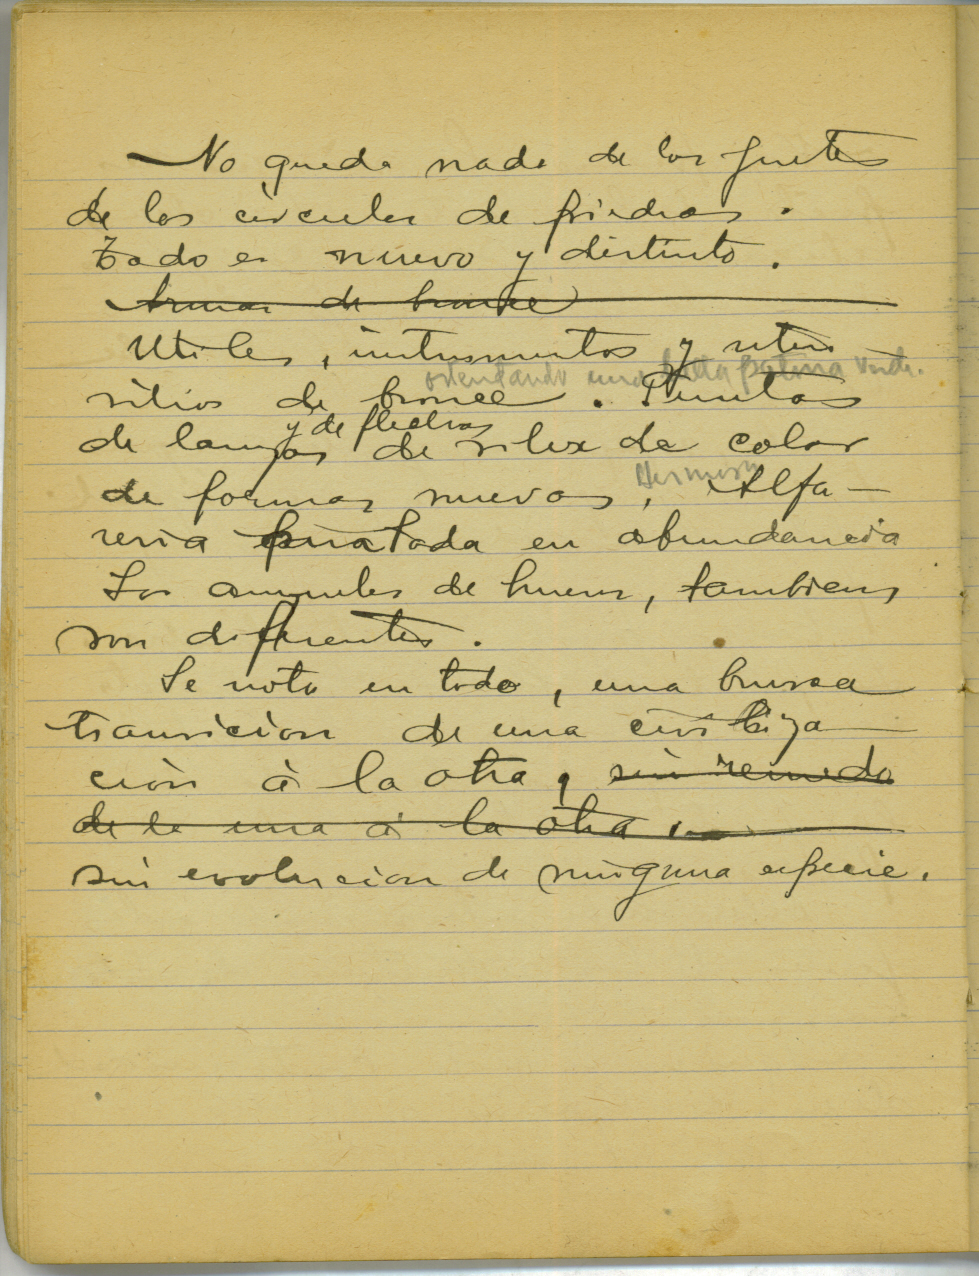 No queda nada de los
de los circulos de piedras.
Todo es nuevo y distinto.
Armas de bronce
Utiles, instrumentos y uten
ostentando una bella patina verde.
silios de bronce. Puntas
y de flechas
de lanzas de silex de color
Hermosa
de formas nuevas, Alfa-
reria pintada en abundancia
Los amuletos de hueso, tambien
son diferentes.
Se nota en todo, una brusca
transicion de una civiliza
ción á la otra, sin remedo
de la una á la otra
sin evolucion de ninguna especie.